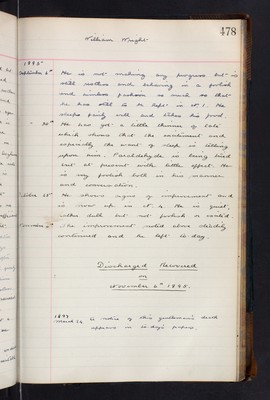 478
William Wright
1895
September 6th He is not making any progress but is
still restless and behaving in a foolish
and aimless fashion so much so that
he has still to be kept in W. 1. He
sleeps fairly well and takes his food.
" 30th He has got a little thinner of late
which shows that the excitement and
especially the want of sleep is telling
upon him. Paraldehyde is being tried
but at present with little effect. He
is very foolish both in his manner
and conversation.
October 25th He shows signs of improvement and
is now up in W. 4. He is quiet,
rather dull but not foolish or excited.
November 6th The improvement noted above steadily
continued and he left to-day.
Discharged Recovered
on
November 6th 1895.
1897
March 22 A notice of this gentleman's death
appears in to-day's papers.